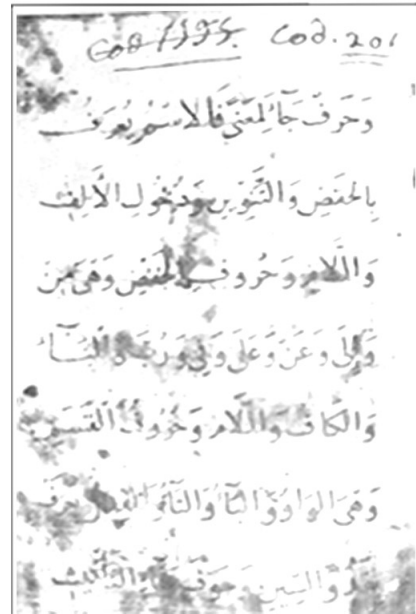 Cod. 1375. Cod. 201
وَحَرفٌ جَآءَ لِمَعْنًى فَالاسْمُ يُعرَفُ
بِالخفضِ وَالتَّنوِينِ وَدُخُولِ الأَلِفِ
وَاللَّامِ وَحُرُوفِ الخفضِ وَهىَ مِنْ
وَإِلَى وَعَنْ وَعَلَى وَفِى وَرُبَّ وَالبَآءُ
وَالكَافُ وَاللَّامُ وَحُرُوفُ القَسَمِ
وَهىَ الوَاوُ وَالبَآءُ وَالتَّآءُ وَالفِعلُ يُعرَفُ
وَالسِّينِ